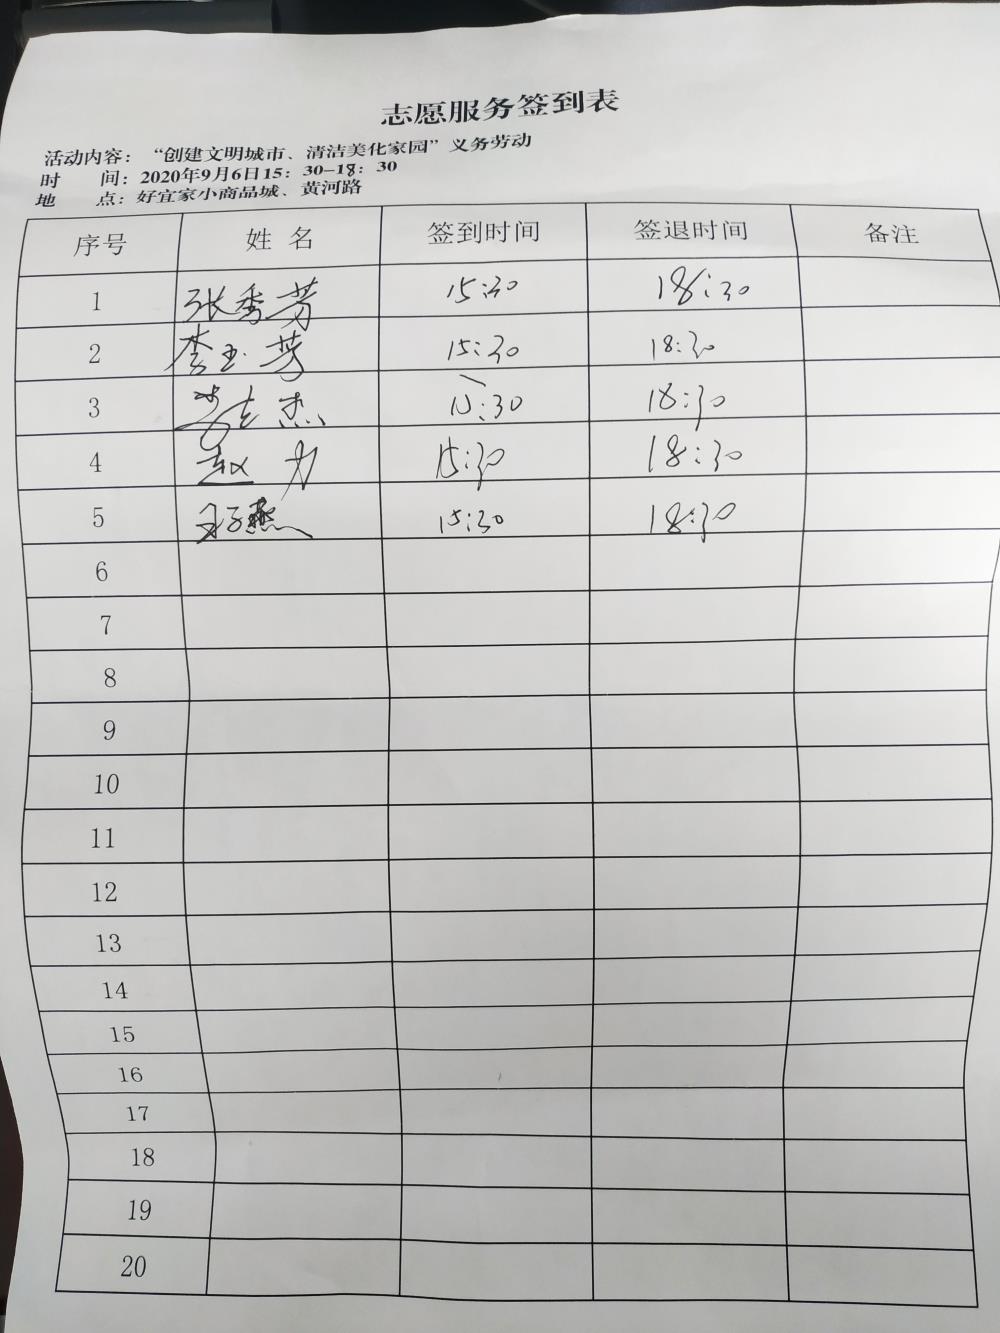 志愿服务签到表
活动内容：“创建文明城市、清洁美化家园”义务劳动
时 间：2020年9月6日15：30-18：30
地 点：好宜家小商品城、黄河路
序号 姓 名 签到时间 签退时间 备注
1 张秀芳 15:30 18:30
2 李玉芳 15:30 18:30
3 李志杰 15:30 18:30
4 赵力 15:30 18:30
5 燕 15:30 18:30
6
7
8
9
10
11
12
13
14
15
16
17
18
19
20